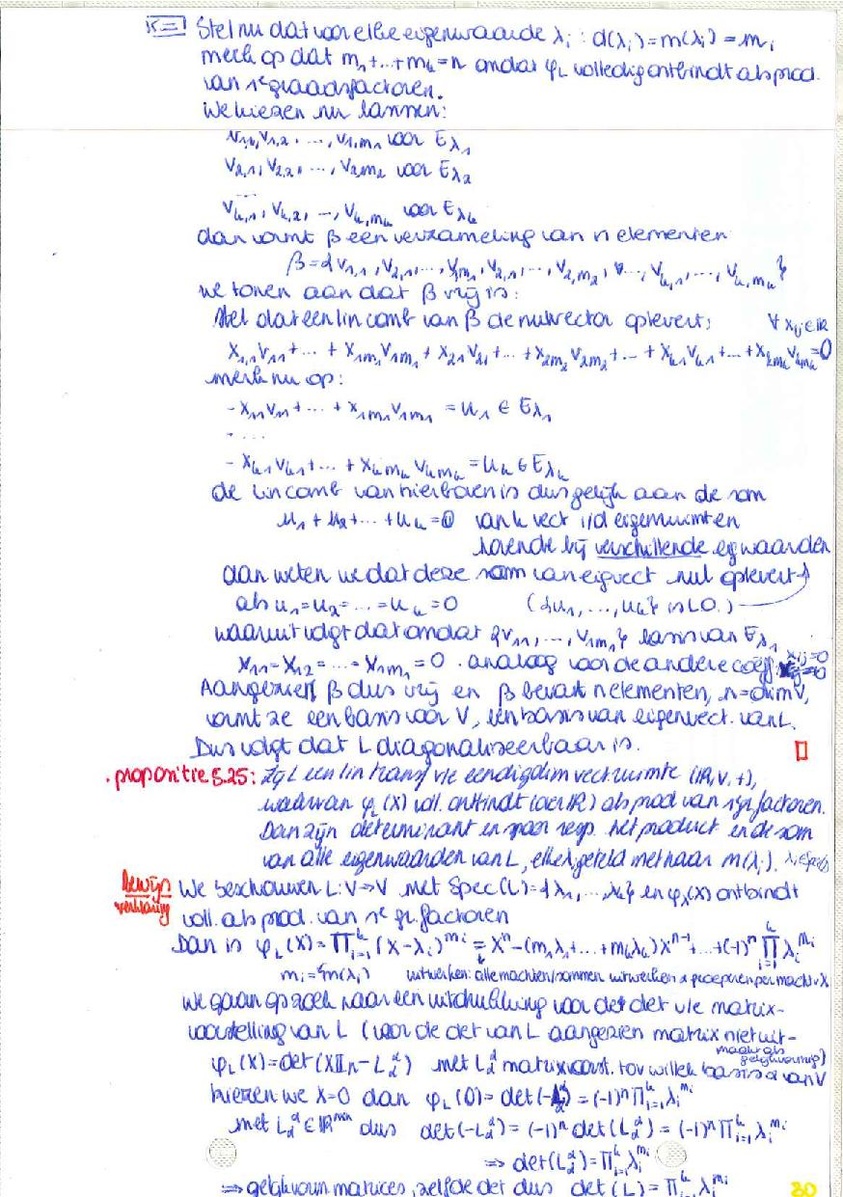 ⇐ Stel nu dat voor elke eigenwaarde λᵢ : d(λᵢ) = m(λᵢ) = mᵢ
merk op dat m₁+...+mₖ = n omdat φ_L volledig ontbindt als prod.
van 1ᵉ graadsfactoren.
We kiezen nu basissen:
v₁,₁, v₁,₂, ..., v₁,m₁ voor E_λ₁
v₂,₁, v₂,₂, ..., v₂,m₂ voor E_λ₂
...
vₖ,₁, vₖ,₂, ..., vₖ,mₖ voor E_λₖ
dan vormt β een verzameling van n elementen
β = {v₁,₁, v₂,₁, ..., v₁m₁, v₂,₁, ..., v₂,m₂, ..., vₖ,₁, ..., vₖ,mₖ}
we tonen aan dat β vrij is:
Stel dat een lin comb van β de nulvector oplevert; ∀ xᵢⱼ ∈ ℝ
x₁,₁v₁₁ + ... + x₁m₁v₁m₁ + x₂₁v₂₁ + ... + x₂m₂v₂m₂ + ... + xₖ₁vₖ₁ + ... + xₖmₖvₖmₖ = 0
merk nu op:
- x₁₁v₁₁ + ... + x₁m₁v₁m₁ = u₁ ∈ E_λ₁
- ...
- xₖ₁vₖ₁ + ... + xₖmₖvₖmₖ = uₖ ∈ E_λₖ
de lin comb van hierboven is dus gelijk aan de som
u₁ + u₂ + ... + uₖ = 0 van k vect i/d eigenruimten
horende bij verschillende eigwaarden
dan weten we dat deze som van eigvect nul oplevert
als u₁ = u₂ = ... = uₖ = 0 ({u₁, ..., uₖ} is LO.)
waaruit volgt dat omdat {v₁₁, ..., v₁m₁} basis van E_λ₁
x₁₁ = x₁₂ = ... = x₁m₁ = 0. analoog voor de andere coëff. xᵢⱼ=0
Aangezien β dus vrij en β bevat n elementen, n = dim V,
vormt ze een basis voor V, een basis van eigenvect. van L.
Dus volgt dat L diagonaliseerbaar is. □
. propositie 5.25: Zij L een lin transf v/e eindigdim vectruimte (ℝ, V, +),
waarvan φ_L(X) voll. ontbindt (over ℝ) als prod van 1ᵉ gr. factoren.
Dan zijn determinant en spoor resp. het product en de som
van alle eigenwaarden van L, elk geteld met haar m(λᵢ).
Bewijs We beschouwen L: V→V met Spec(L) = {λ₁, ..., λₖ} en φ_L(X) ontbindt
verklaring voll. als prod. van 1ᵉ gr. factoren
Dan is φ_L(X) = ∏ᵢ₌₁ᵏ (X-λᵢ)^mᵢ = Xⁿ - (m₁λ₁+...+mₖλₖ)Xⁿ⁻¹ + ... + (-1)ⁿ ∏ᵢ₌₁ᵏ λᵢ^mᵢ
mᵢ = m(λᵢ) uitwerken: alle machten/sommen uitwerken & groeperen per macht v X
We gaan op zoek naar een uitdrukking voor det det v/e matrix-
voorstelling van L (voor de det van L aangezien matrix niet uit-
maakt als gelijkvormig)
φ_L(X) = det(X𝕀ₙ - L_α^α) met L_α^α matrixvoorst. tov willek basis α van V
kiezen we X=0 dan φ_L(0) = det(-L_α^α) = (-1)ⁿ ∏ᵢ₌₁ᵏ λᵢ^mᵢ
met L_α^α ∈ ℝⁿˣⁿ dus det(-L_α^α) = (-1)ⁿ det(L_α^α) = (-1)ⁿ ∏ᵢ₌₁ᵏ λᵢ^mᵢ
⇒ det(L_α^α) = ∏ᵢ₌₁ᵏ λᵢ^mᵢ
⇒ gelijkvorm matrices, zelfde det dus det(L) = ∏ᵢ₌₁ᵏ λᵢ^mᵢ